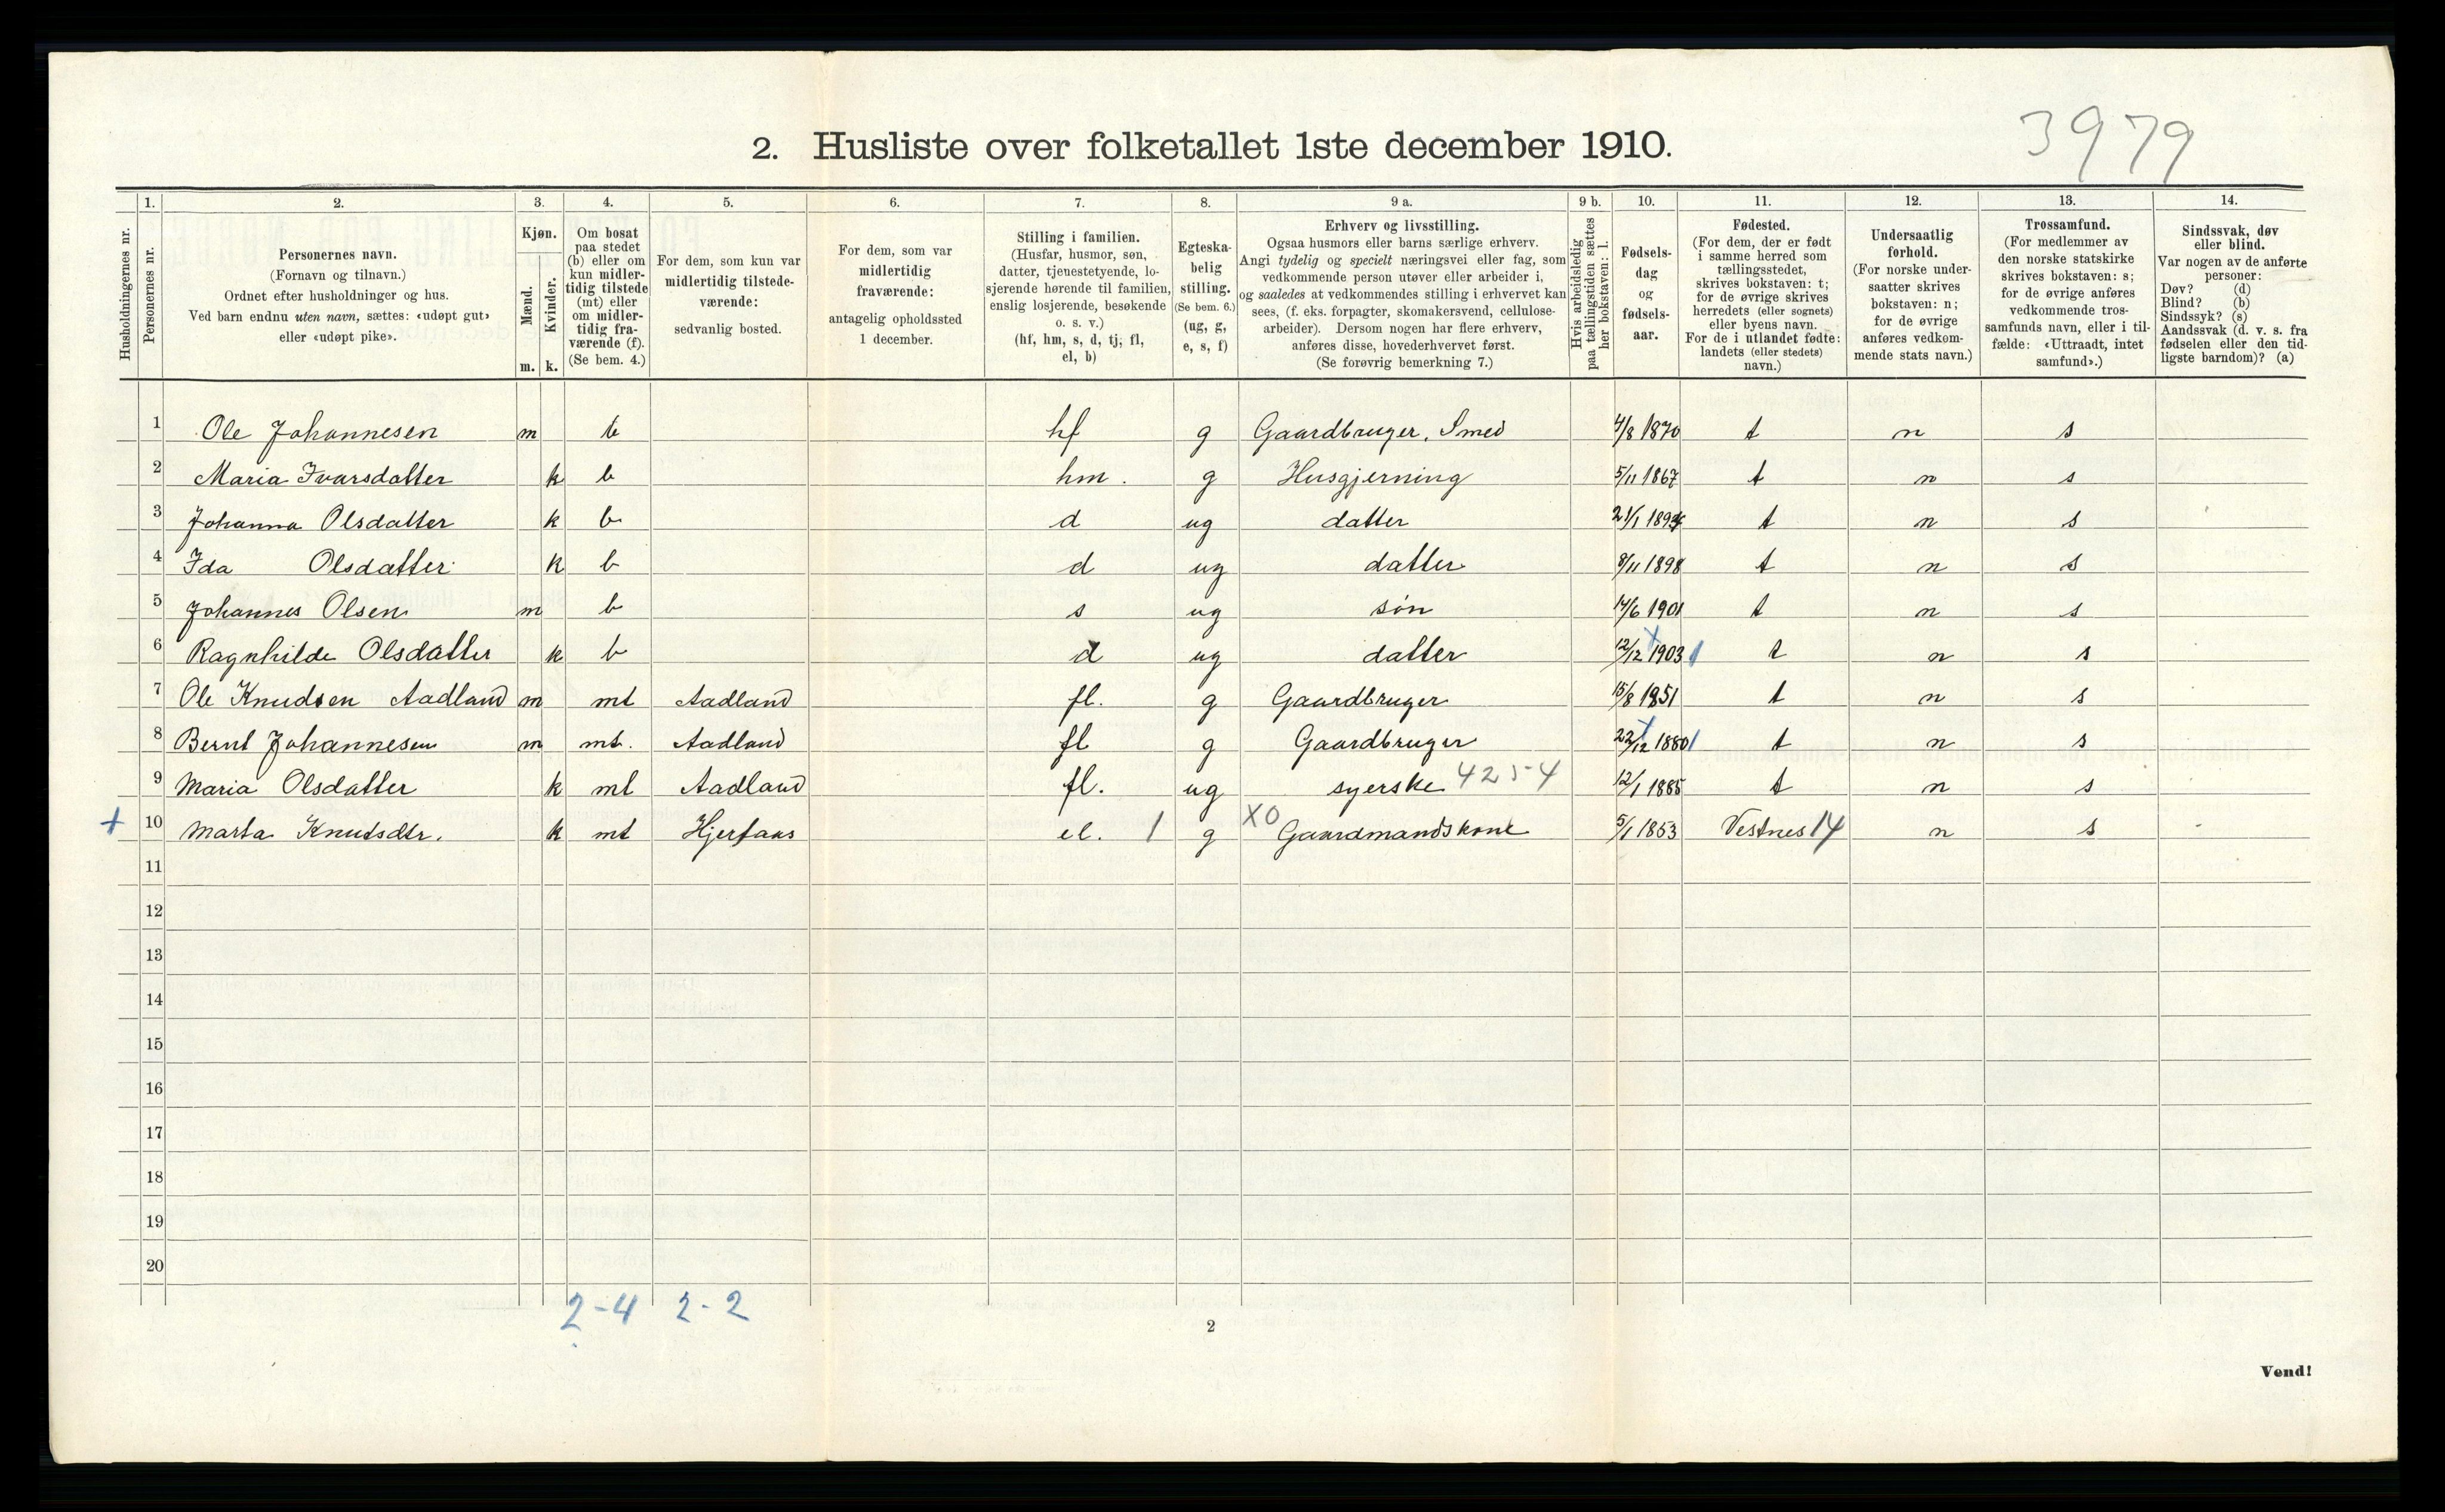 3979
2. Husliste over folketallet 1ste december 1910.
Husholdningernes nr.
1. Personernes nr.
2. Personernes navn.
(Fornavn og tilnavn.)
Ordnet efter husholdninger og hus.
Ved barn endnu uten navn, sættes: «udøpt gut»
eller «udøpt pike».
3. Kjøn.
Mænd. m.
Kvinder. k.
4. Om bosat
paa stedet
(b) eller om
kun midler-
tidig tilstede
(mt) eller
om midler-
tidig fra-
værende (f).
(Se bem. 4.)
5. For dem, som kun var
midlertidig tilstede-
værende:
sedvanlig bosted.
6. For dem, som var
midlertidig
fraværende:
antagelig opholdssted
1 december.
7. Stilling i familien.
(Husfar, husmor, søn,
datter, tjenestetyende, lo-
sjerende hørende til familien,
enslig losjerende, besøkende
o. s. v.)
(hf, hm, s, d, tj, fl,
el, b)
8. Egteska-
belig
stilling.
(Se bem. 6.)
(ug, g,
e, s, f)
9 a. Erhverv og livsstilling.
Ogsaa husmors eller barns særlige erhverv.
Angi tydelig og specielt næringsvei eller fag, som
vedkommende person utøver eller arbeider i,
og saaledes at vedkommendes stilling i erhvervet kan
sees, (f. eks. forpagter, skomakersvend, cellulose-
arbeider). Dersom nogen har flere erhverv,
anføres disse, hovederhvervet først.
(Se forøvrig bemerkning 7.)
9 b. Hvis arbeidsledig
paa tællingstiden sættes
her bokstaven: l.
10. Fødsels-
dag
og
fødsels-
aar.
11. Fødested.
(For dem, der er født
i samme herred som
tællingsstedet,
skrives bokstaven: t;
for de øvrige skrives
herredets (eller sognets)
eller byens navn.
For de i utlandet fødte:
landets (eller stedets)
navn.)
12. Undersaatlig
forhold.
(For norske under-
saatter skrives
bokstaven: n;
for de øvrige
anføres vedkom-
mende stats navn.)
13. Trossamfund.
(For medlemmer av
den norske statskirke
skrives bokstaven: s;
for de øvrige anføres
vedkommende tros-
samfunds navn, eller i til-
fælde: «Uttraadt, intet
samfund».)
14. Sindssvak, døv
eller blind.
Var nogen av de anførte
personer:
Døv? (d)
Blind? (b)
Sindssyk? (s)
Aandssvak (d. v. s. fra
fødselen eller den tid-
ligste barndom)? (a)
1 Ole Johannesen m b hf g Gaardbruger, Smed 4/8 1870 t n s
2 Maria Ivarsdatter k b hm. g Husgjerning 5/11 1867 t n s
3 Johanna Olsdatter k b d ug datter 21/1 1894 t n s
4 Ida Olsdatter k b d ug datter 8/11 1898 t n s
5 Johannes Olsen m b s ug søn 14/6 1901 t n s
6 Ragnhilde Olsdatter k b d ug datter 12/12 1903 t n s
7 Ole Knudsen Aadland m mt Aadland fl. g Gaardbruger 15/8 1851 t n s
8 Bernt Johannesen m mt. Aadland fl g Gaardbruger 22/12 1880 t n s
9 Maria Olsdatter k mt Aadland fl. ug syerske 4254 12/1 1885 t n s
+ 10 Marta Knutsdtr. k mt Hjertaas el. 1 g XO Gaardmandskone 5/1 1853 Vestnes 14 n s
11
12
13
14
15
16
17
18
19
20
2-4 2-2
2
Vend!